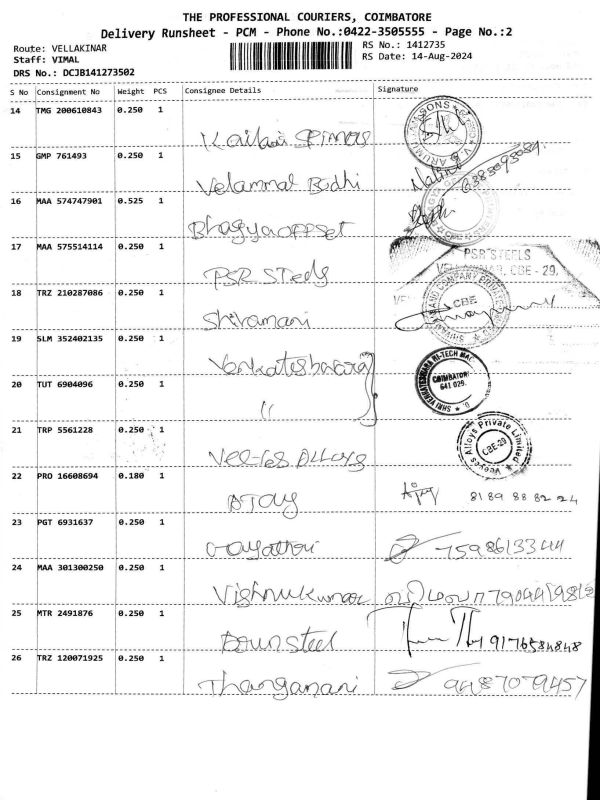 THE PROFESSIONAL COURIERS, COIMBATORE
Delivery Runsheet - PCM - Phone No.:0422-3505555 - Page No.:2
Route: VELLAKINAR
Staff: VIMAL
DRS No.: DCJB141273502
RS No.: 1412735
RS Date: 14-Aug-2024
S No Consignment No Weight PCS Consignee Details Signature
14 TMG 200610843 0.250 1
15 GMP 761493 0.250 1 Velammal Bodhi
16 MAA 574747901 0.525 1 Bhagya offset
17 MAA 575514114 0.250 1 PSR Steels PSR STEELS
VELLAKINAR, CBE - 29.
18 TRZ 210287086 0.250 1 Shivamani CBE
19 SLM 352402135 0.250 1 Venkateshwara SHRI VENKATESHWARA HI-TECH COIMBATORE 641 029.
20 TUT 6904096 0.250 1 "
21 TRP 5561228 0.250 1 Vee-Yes Alloys Veeyes Alloys Private Limited CBE-29
22 PRO 16608694 0.180 1 AJAY Ajay 81 89 88 82 24
23 PGT 6931637 0.250 1 Gayathri 7598613344
24 MAA 301300250 0.250 1 Vishnukumar
25 MTR 2491876 0.250 1 9176584848
26 TRZ 120071925 0.250 1 Thangamani 9487079457